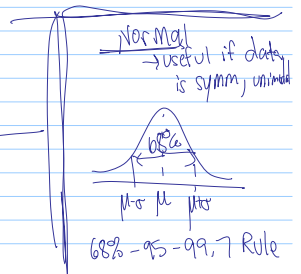 Normal
→ useful if data
is symm, unimodal
68%
μ-σ μ μ+σ
68%-95-99.7 Rule